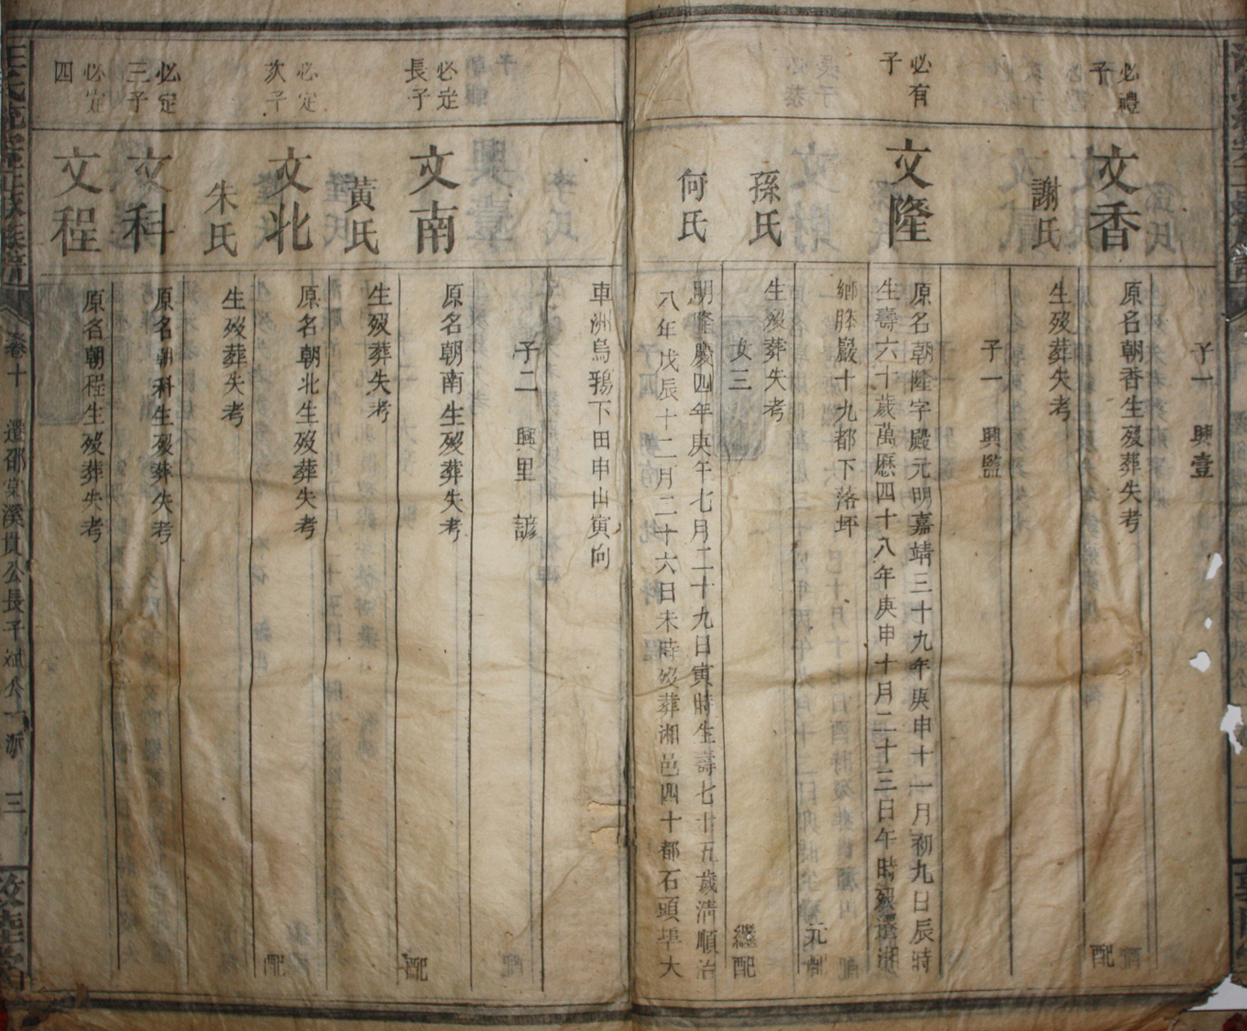 子一 興壹
必禮
子
文香
原名朝香生歿葬失考
配
謝氏
生歿葬失考
子一 興監
必有
子
文隆
原名朝隆字殿元明嘉靖三十九年庚申十一月初九日辰時
生壽六十歲萬曆四十八年庚申十月二十三日午時歿葬湘
鄉勝嚴十九都下落坪
元配
孫氏
生歿葬失考
女三
繼配
何氏
明隆慶四年庚午七月二十九日寅時生壽七十五歲淸順治
八年戊辰十二月二十六日未時歿葬湘邑四十都石頭埠大
車洲烏鴉下田申山寅向
子二 興里 諺
必定
長子
文南
原名朝南生歿葬失考
配
黃氏
生歿葬失考
必定
次子
文北
原名朝北生歿葬失考
配
朱氏
生歿葬失考
必定
三子
文科
原名朝科生歿葬失考
必定
四
文程
原名朝程生歿葬失考
卷十
遷邵棠溪貫公長子斌公一派
三
敦睦堂